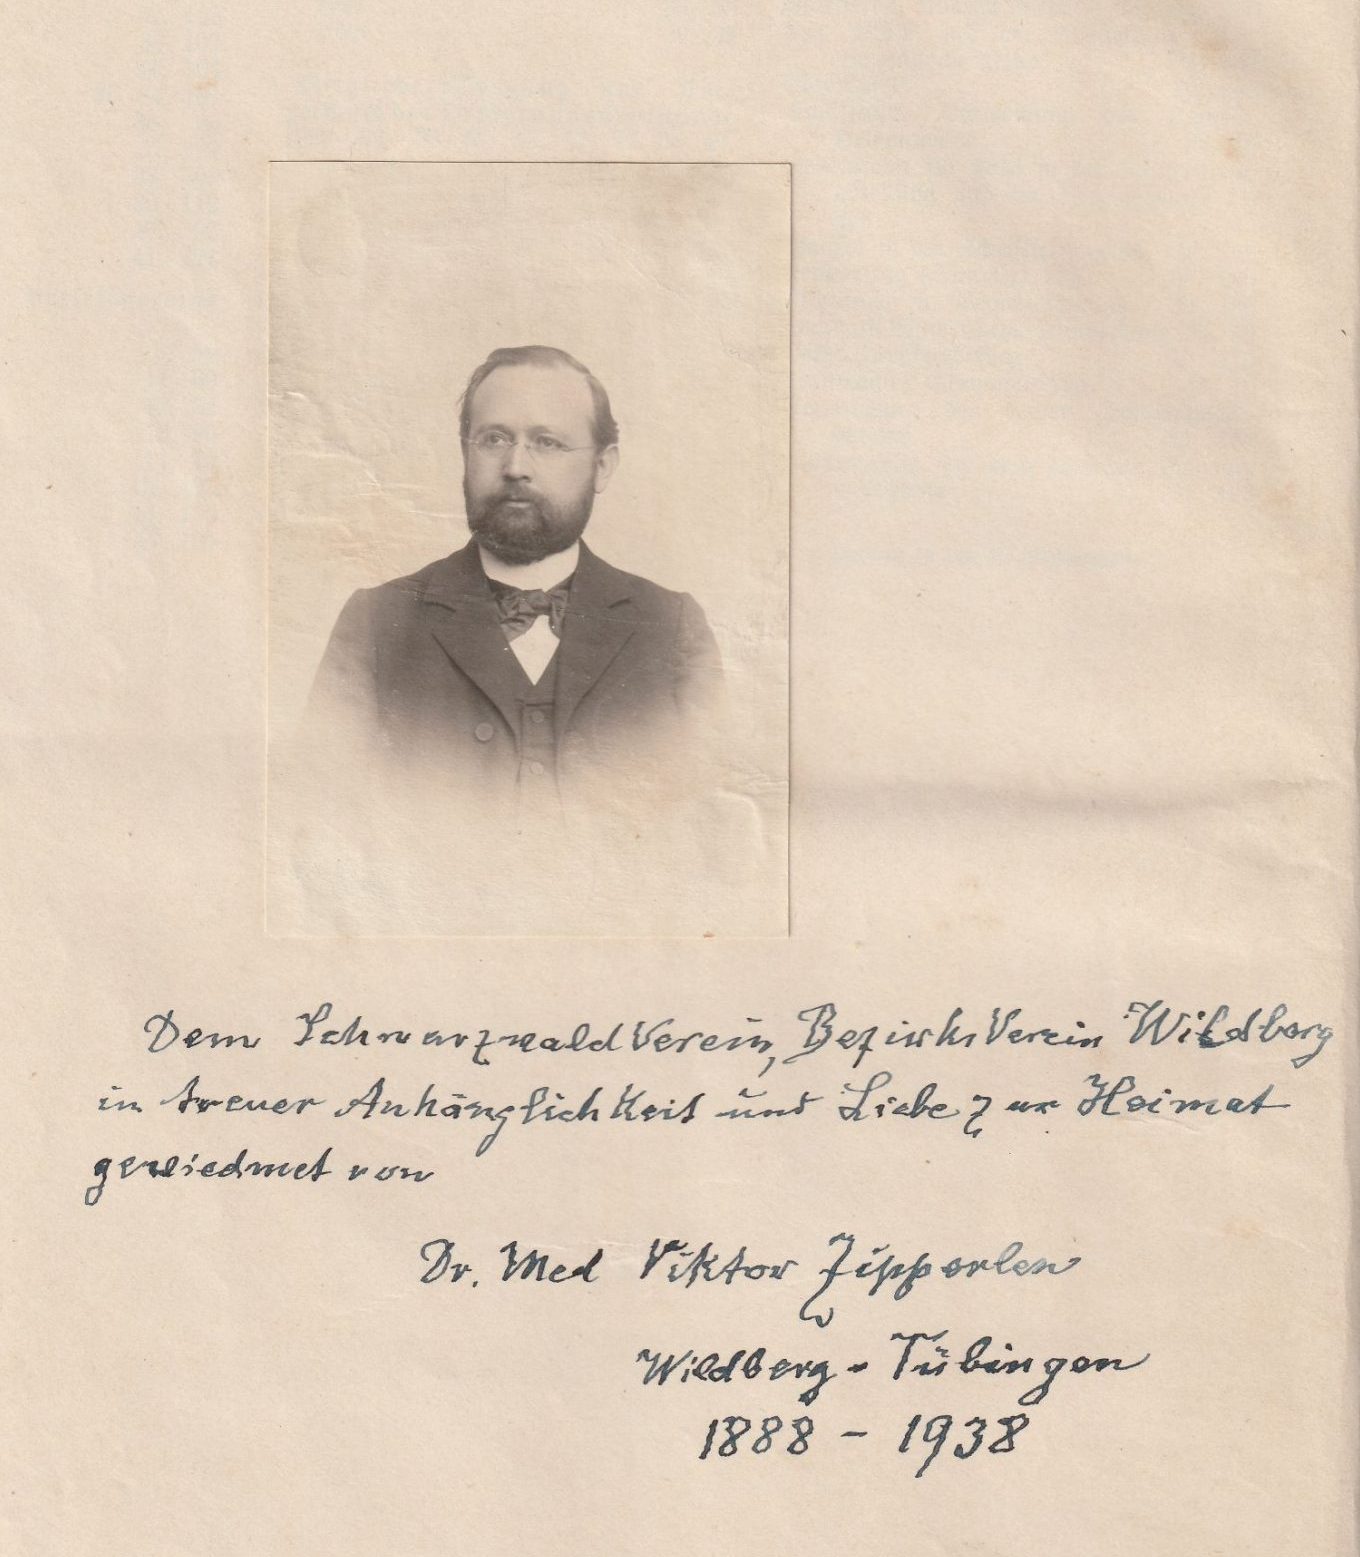 Dem Schwarzwald Verein, Bezirks Verein Wildberg
in treuer Anhänglichkeit und Liebe zur Heimat
gewiedmet von
Dr. Med Viktor Zipperlen
Wildberg - Tübingen
1888 - 1938